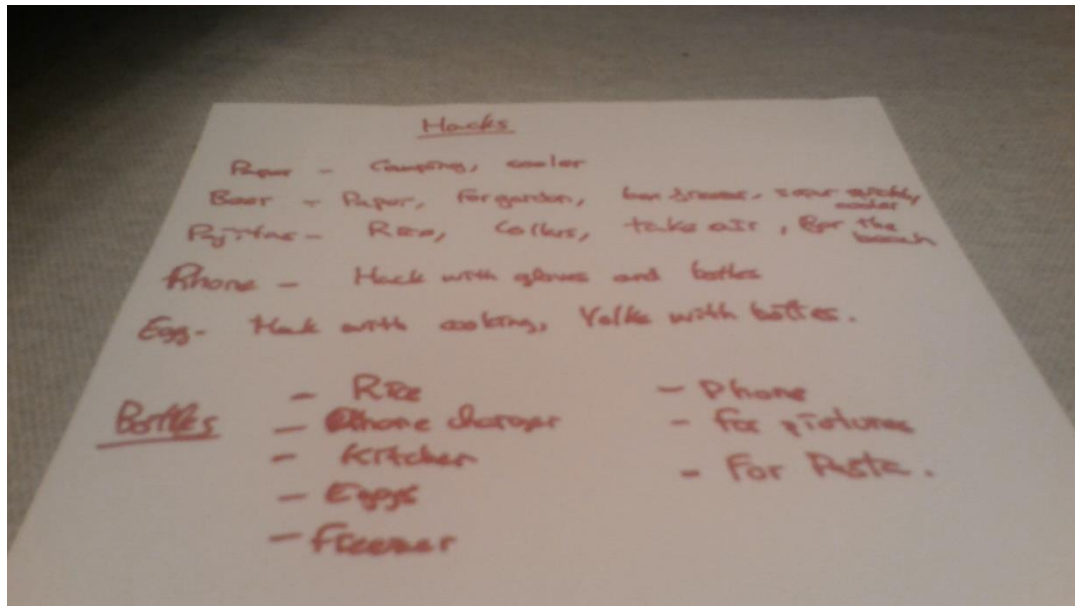 Hacks
Paper - Camping, cooler
Beer - Paper, for garden, quickly cooler
Rice, take air, for the beach
Phone - Hack with gloves and bottles
Egg - Hack with cooking, Yolks with bottles.
Bottles
- Rice
- Phone charger
- Kitchen
- Eggs
- Freezer
- Phone
- for pictures
- For Pasta.